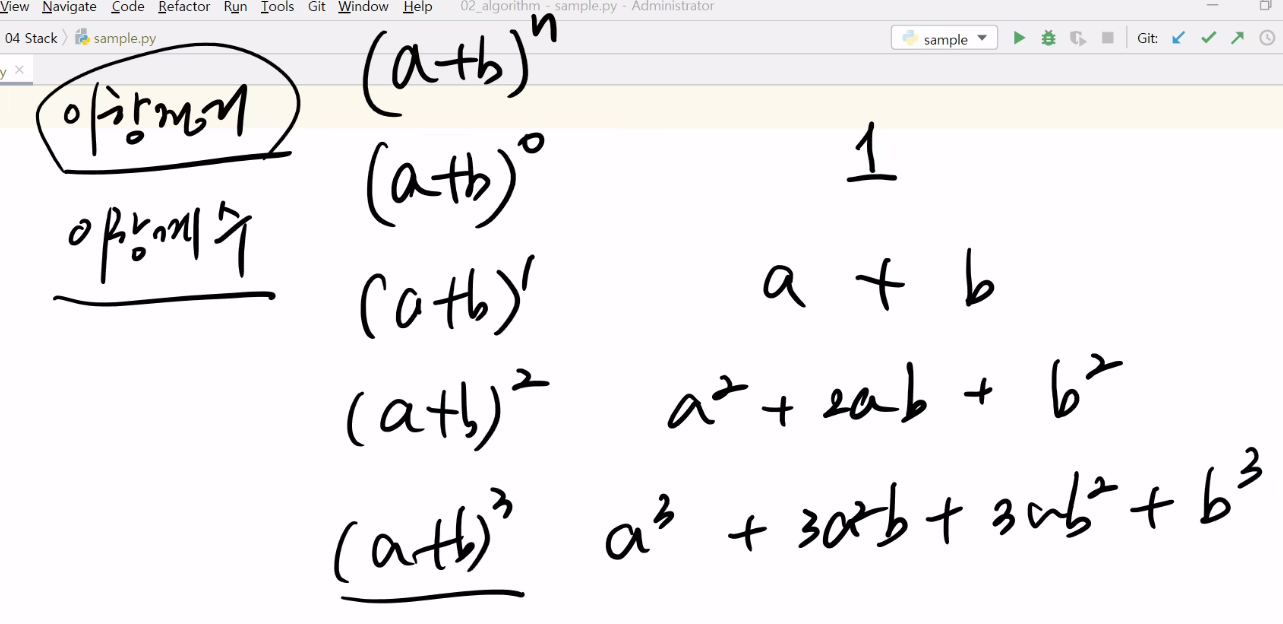 View Navigate Code Refactor Run Tools Git Window Help 02_algorithm - sample.py - Administrator
04 Stack sample.py
sample Git:
y
이항정리
이항계수
(a+b)ⁿ
(a+b)⁰ 1
(a+b)¹ a + b
(a+b)² a² + 2ab + b²
(a+b)³ a³ + 3a²b + 3ab² + b³